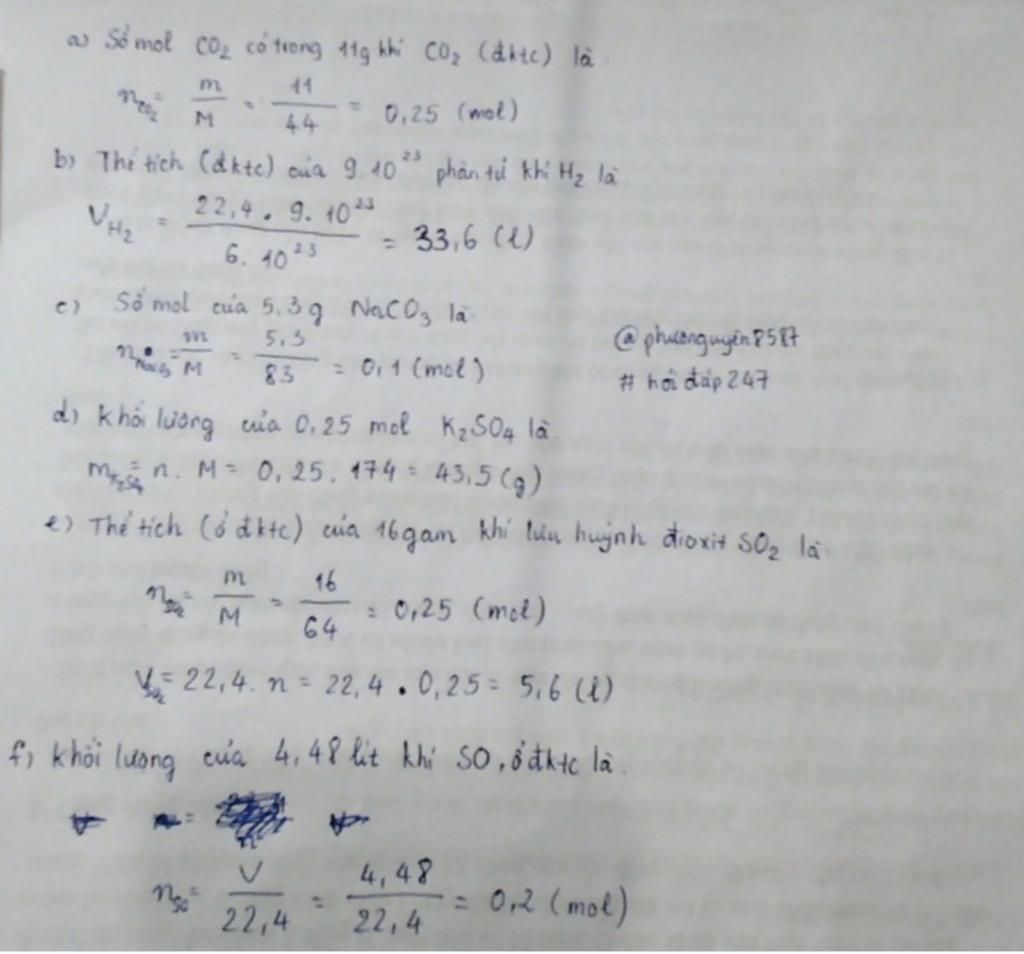 a) Số mol CO₂ có trong 11g khí CO₂ (đktc) là
n_CO₂ = m/M = 11/44 = 0,25 (mol)
b) Thể tích (đktc) của 9.10²³ phân tử khí H₂ là
V_H₂ = 22,4 . 9. 10²³ / 6. 10²³ = 33,6 (l)
c) Số mol của 5,3g NaCO₃ là
n_NaCO₃ = m/M = 5,3/83 = 0,1 (mol)
@phuonguyen8587
# hỏi đáp 247
d) Khối lượng của 0,25 mol K₂SO₄ là
m_K₂SO₄ = n. M = 0,25. 174 = 43,5 (g)
e) Thể tích (ở đktc) của 16gam khí lưu huỳnh đioxit SO₂ là
n_SO₂ = m/M = 16/64 = 0,25 (mol)
V_SO₂ = 22,4. n = 22,4 . 0,25 = 5,6 (l)
f) Khối lượng của 4,48 lít khí SO, ở đktc là
n_SO = V/22,4 = 4,48/22,4 = 0,2 (mol)